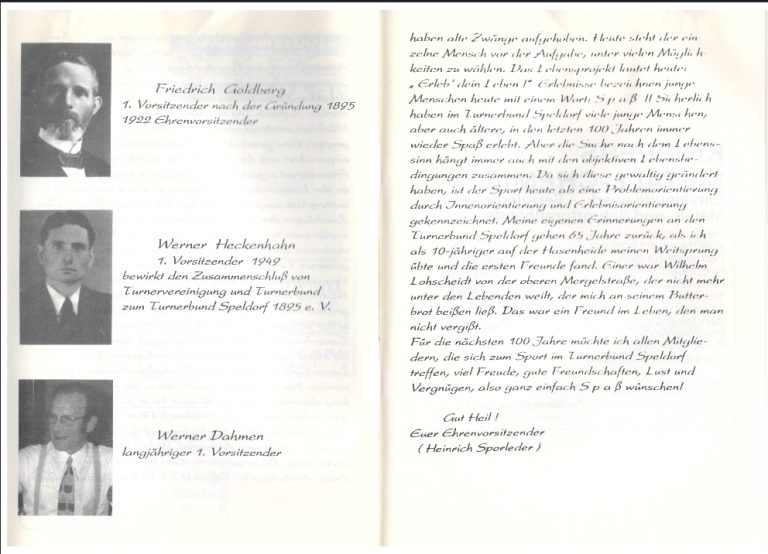 Friedrich Goldberg
1. Vorsitzender nach der Gründung 1895
1922 Ehrenvorsitzender
Werner Heckenhahn
1. Vorsitzender 1949
bewirkt den Zusammenschluß von
Turnervereinigung und Turnerbund
zum Turnerbund Speldorf 1895 e. V.
Werner Dahmen
langjähriger 1. Vorsitzender
haben alte Zwänge aufgehoben. Heute steht der ein
zelne Mensch vor der Aufgabe, unter vielen Möglich-
keiten zu wählen. Das Lebensprojekt lautet heute:
„Erleb' dein Leben !" Erlebnisse bezeichnen junge
Menschen heute mit einem Wort: S p a ß !! Sicherlich
haben im Turnerbund Speldorf viele junge Menschen,
aber auch ältere, in den letzten 100 Jahren immer
wieder Spaß erlebt. Aber die Suche nach dem Lebens-
sinn hängt immer auch mit den objektiven Lebensbe-
dingungen zusammen. Da sich diese gewaltig geändert
haben, ist der Sport heute als eine Problemorientierung
durch Innenorientierung und Erlebnisorientierung
gekennzeichnet. Meine eigenen Erinnerungen an den
Turnerbund Speldorf gehen 65 Jahre zurück, als ich
als 10-jähriger auf der Hasenheide meinen Weitsprung
übte und die ersten Freunde fand. Einer war Wilhelm
Lohscheidt von der oberen Mergelstraße, der nicht mehr
unter den Lebenden weilt, der mich an seinem Butter-
brot beißen ließ. Das war ein Freund im Leben, den man
nicht vergißt.
Für die nächsten 100 Jahre möchte ich allen Mitglie-
dern, die sich zum Sport im Turnerbund Speldorf
treffen, viel Freude, gute Freundschaften, Lust und
Vergnügen, also ganz einfach S p a ß wünschen!
Gut Heil !
Euer Ehrenvorsitzender
( Heinrich Sporleder )